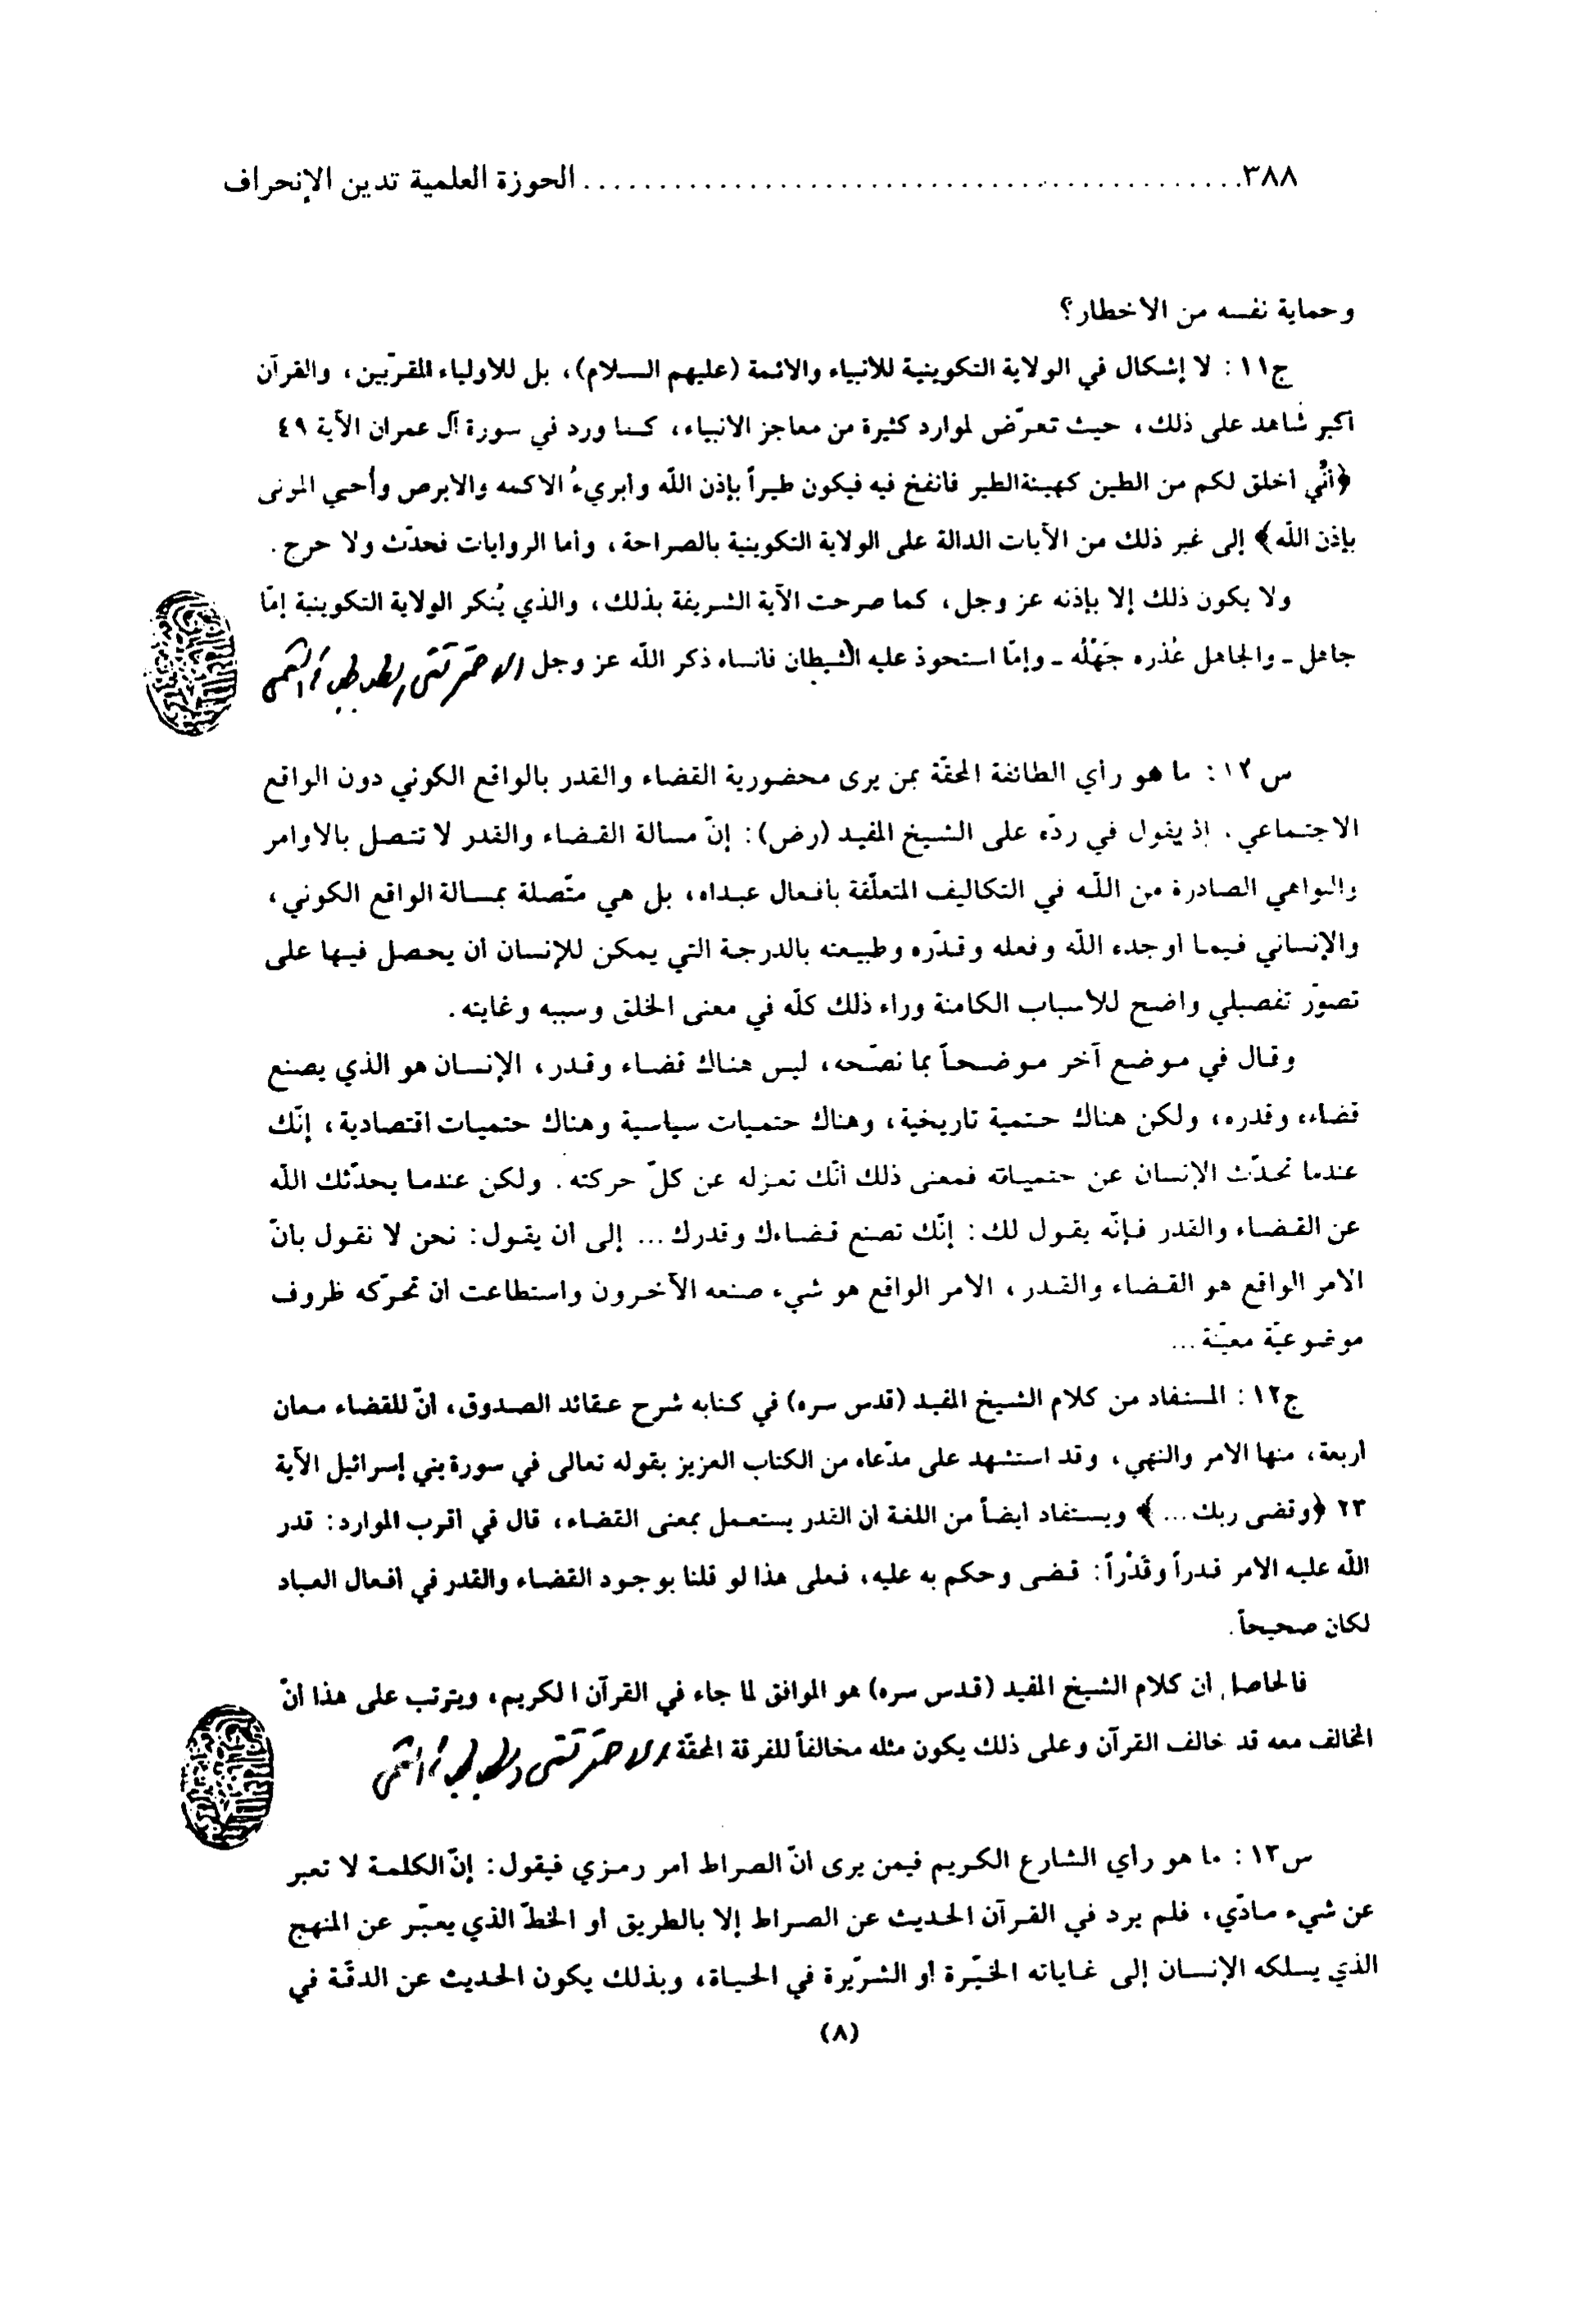 ٣٨٨ ........................................ الحوزة العلمية تدين الإنحراف
وحماية نفسه من الاخطار؟
ج١١: لا إشكال في الولاية التكوينية للأنبياء والائمة (عليهم السلام)، بل للأولياء المقرّبين، والقرآن
أكبر شاهد على ذلك، حيث تعرّض لموارد كثيرة من معاجز الانبياء، كما ورد في سورة آل عمران الآية ٤٩
﴿أنّي أخلق لكم من الطين كهيئة الطير فانفخ فيه فيكون طيراً بإذن اللّه وأبريءُ الاكمه والابرص وأحيي الموتى
بإذن اللّه﴾ إلى غير ذلك من الآيات الدالة على الولاية التكوينية بالصراحة، وأما الروايات فحدّث ولا حرج.
ولا يكون ذلك إلا بإذنه عز وجل، كما صرحت الآية الشريفة بذلك، والذي يُنكر الولاية التكوينية إمّا
جاهل ـ والجاهل عُذره جَهْلُه ـ وإمّا استحوذ عليه الشيطان فانساه ذكر اللّه عز وجل الاحقر تقي الطباطبائي القمي
س١٢: ما هو رأي الطائفة المحقّة بمن يرى محضورية القضاء والقدر بالواقع الكوني دون الواقع
الاجتماعي. إذ يقول في ردّه على الشيخ المفيد (رض): إنّ مسالة القضاء والقدر لا تتصل بالأوامر
والنواهي الصادرة من اللّه في التكاليف المتعلّقة بافعال عبداه، بل هي متّصلة بمسالة الواقع الكوني،
والإنساني فيما اوجده اللّه وفعله وقدّره وطبيعته بالدرجة التي يمكن للإنسان ان يحصل فيها على
تصوّر تفصيلي واضح للأسباب الكامنة وراء ذلك كلّه في معنى الخلق وسببه وغايته.
وقال في موضع آخر موضحاً بما نصّحه، ليس هناك قضاء وقدر، الإنسان هو الذي يصنع
قضاءه وقدره، ولكن هناك حتمية تاريخية، وهناك حتميات سياسية وهناك حتميات اقتصادية، إنّك
عندما تحدّث الإنسان عن حتمياته فمعنى ذلك انّك تعزله عن كلّ حركته. ولكن عندما يحدّثك اللّه
عن القضاء والقدر فإنّه يقول لك: إنّك تصنع قضاءك وقدرك... إلى ان يقول: نحن لا نقول بانّ
الامر الواقع هو القضاء والقدر، الامر الواقع هو شيء صنعه الآخرون واستطاعت ان تحرّكه ظروف
موضوعيّة معيّنة...
ج١٢: المستفاد من كلام الشيخ المفيد (قدس سره) في كتابه شرح عقائد الصدوق، انّ للقضاء معان
اربعة، منها الامر والنهي، وقد استشهد على مدّعاه من الكتاب العزيز بقوله تعالى في سورة بني إسرائيل الآية
٢٣ ﴿وقضى ربك...﴾ ويستفاد ايضاً من اللغة ان القدر يستعمل بمعنى القضاء، قال في اقرب الموارد: قدر
اللّه عليه الامر قدراً وقَدْراً: قضى وحكم به عليه، فعلى هذا لو قلنا بوجود القضاء والقدر في افعال العباد
لكان صحيحاً.
فالحاصل ان كلام الشيخ المفيد (قدس سره) هو الموافق لما جاء في القرآن الكريم، ويترتب على هذا انّ
المخالف معه قد خالف القرآن وعلى ذلك يكون مثله مخالفاً للفرقة المحقّة الاحقر تقي الطباطبائي القمي
س١٣: ما هو رأي الشارع الكريم فيمن يرى انّ الصراط امر رمزي فيقول: إنّ الكلمة لا تعبر
عن شيء مادّي، فلم يرد في القرآن الحديث عن الصراط إلا بالطريق او الخطّ الذي يعبّر عن المنهج
الذي يسلكه الإنسان إلى غاياته الخيّرة او الشرّيرة في الحياة، وبذلك يكون الحديث عن الدقّة في
(٨)